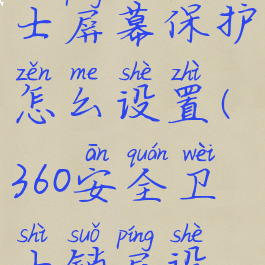 士屏幕保护
zěn me shè zhì
怎么设置(
ān quán wèi
360安全卫
shì suǒ píng shè
士锁屏设